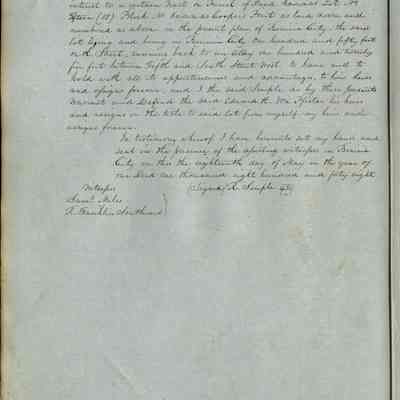 interest to a certain Tract or Parcel of Land known as Lot No
fifteen (15) Block No known as Coopers Front as laid down and
numbered as above in the present plan of Benicia City, the said
lot lying and being in Benicia City One hundred and fifty feet
on Street, running back to an alley one hundred and twenty
five feet between Fifth and Sixth Street West. To have and to
hold with all its appurtenances and advantages, to his heirs
and assigns forever, and I the said Semple do by these presents
Warrant and Defend the said Edward H. Von Pfister his heirs
and assigns in the title to said lot from myself my heirs and
assigns forever.
In testimony whereof I have hereunto set my hand and
seal in the presence of the subscribing witnesses in Benicia
City on this the eighteenth day of May in the year of
our Lord one thousand eight hundred and forty eight
Witnesses (Signed) R. Semple
Miles
R. Franklin Southard